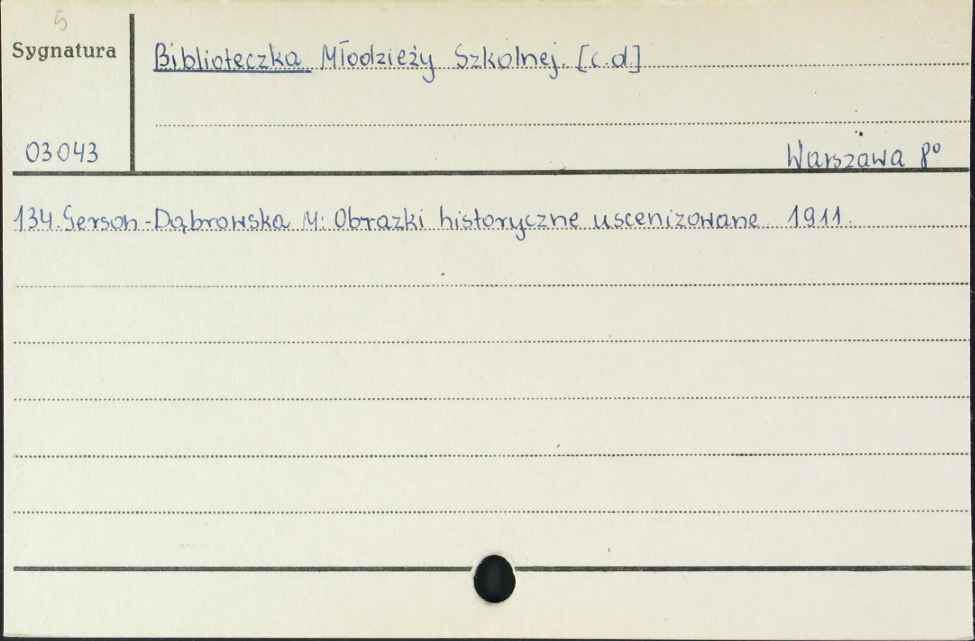 5
Sygnatura
Biblioteczka Młodzieży Szkolnej. [c.d]
03043
Warszawa 8°
134. Gerson-Dąbrowska M: Obrazki historyczne uscenizowane 1911.